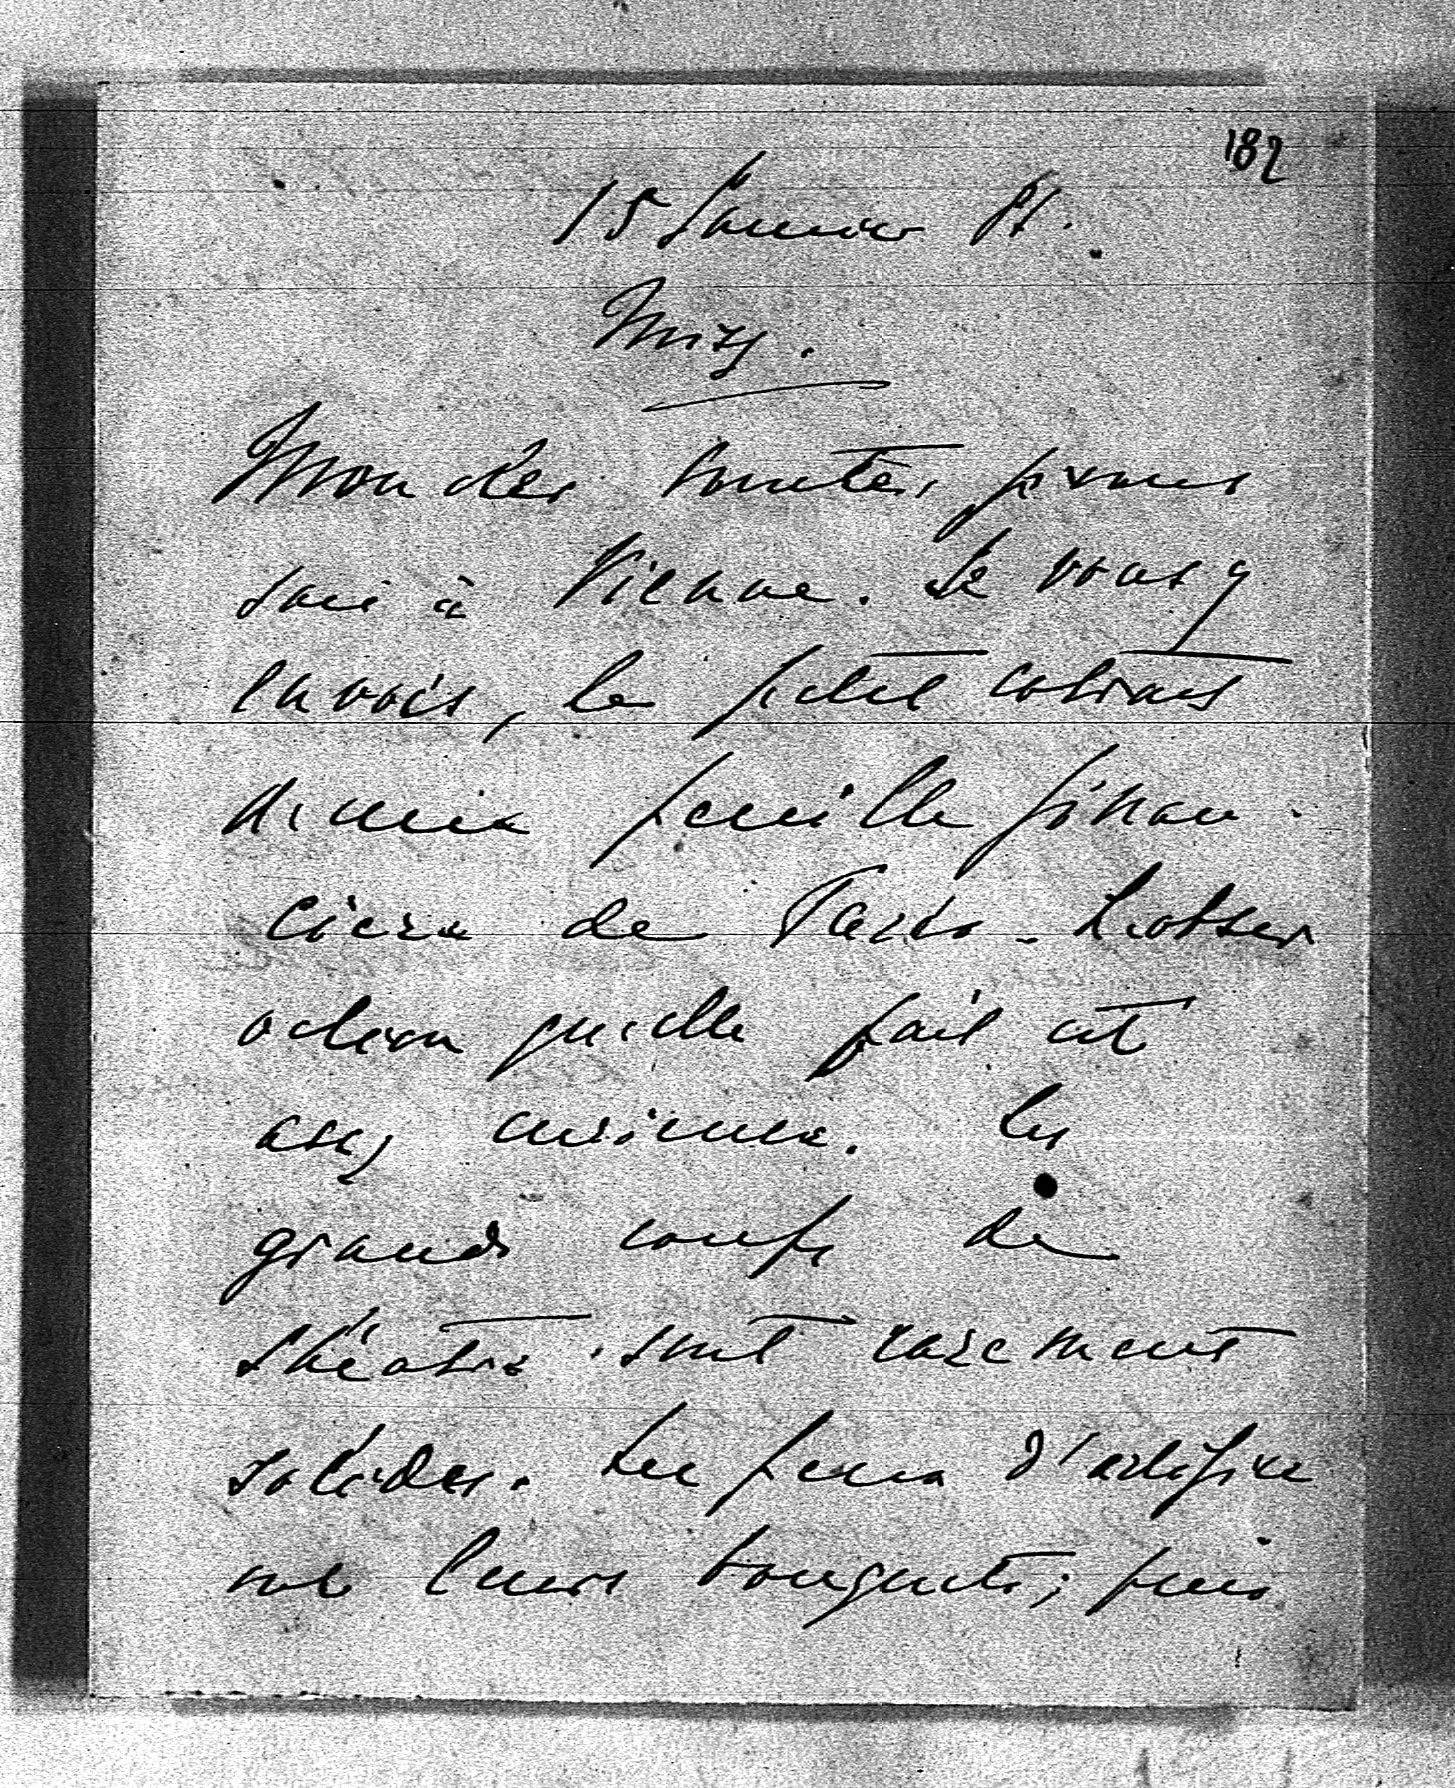 182
15 Janvier 81.
Mizy.
Mon cher Comte, je vous
sais à Vienne. Je vous y
envois, le petit extrait
d'une feuille finan-
cière de Paris. L'obser
vation qu'elle fait est
assez curieuse. Les
grands coups de
théâtre sont rarement
solides. Les feux d'artifice
ont leurs bouquets; puis